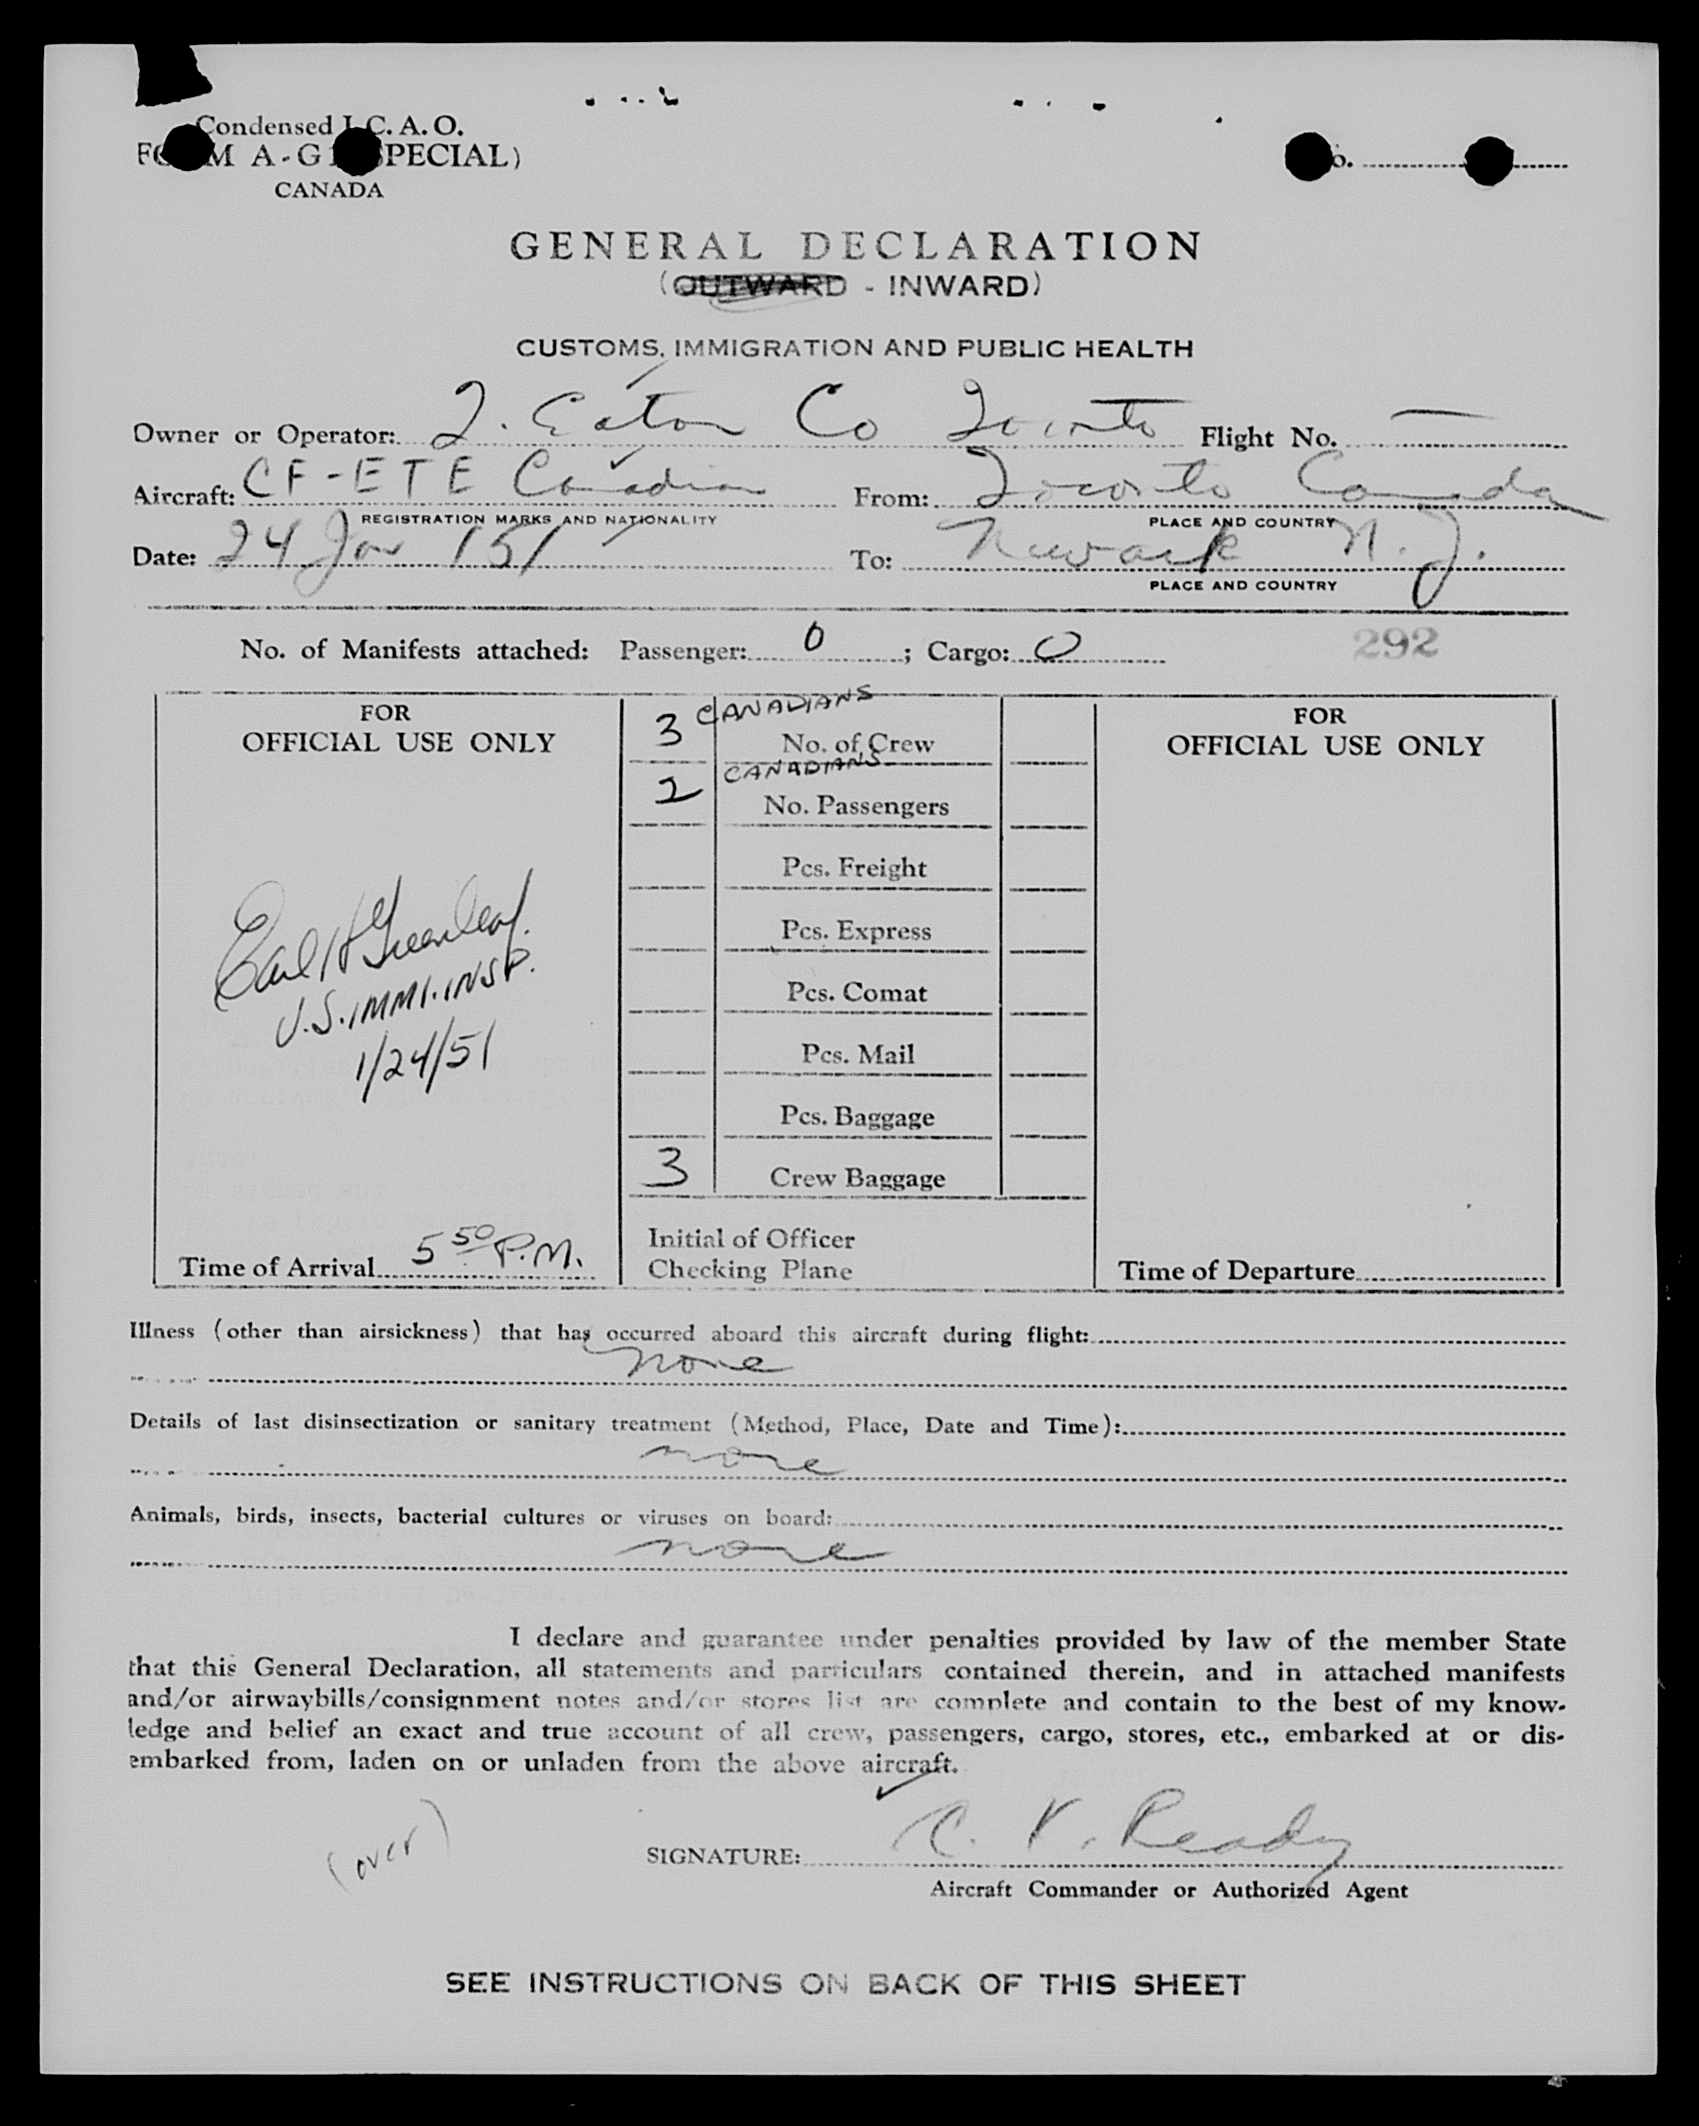 Condensed I. C. A. O.
FORM A-G1 (SPECIAL)
CANADA
GENERAL DECLARATION
(OUTWARD - INWARD)
CUSTOMS, IMMIGRATION AND PUBLIC HEALTH
Owner or Operator: T. Eaton Co Toronto Flight No. —
Aircraft: CF-ETE Canadian From: Toronto Canada
REGISTRATION MARKS AND NATIONALITY PLACE AND COUNTRY
Date: 24 Jan /51 To: Newark N.J.
PLACE AND COUNTRY
No. of Manifests attached: Passenger: 0 ; Cargo: 0 292
FOR
OFFICIAL USE ONLY
Earl H Greenleaf.
U.S. IMMI. INSP.
1/24/51
Time of Arrival 5 50 P.M.
3 CANADIANS
No. of Crew
2 CANADIANS
No. Passengers
Pcs. Freight
Pcs. Express
Pcs. Comat
Pcs. Mail
Pcs. Baggage
3 Crew Baggage
Initial of Officer
Checking Plane
FOR
OFFICIAL USE ONLY
Time of Departure
Illness (other than airsickness) that has occurred aboard this aircraft during flight:
none
Details of last disinsectization or sanitary treatment (Method, Place, Date and Time):
none
Animals, birds, insects, bacterial cultures or viruses on board:
none
I declare and guarantee under penalties provided by law of the member State
that this General Declaration, all statements and particulars contained therein, and in attached manifests
and/or airwaybills/consignment notes and/or stores list are complete and contain to the best of my know-
ledge and belief an exact and true account of all crew, passengers, cargo, stores, etc., embarked at or dis-
embarked from, laden on or unladen from the above aircraft.
(over)
SIGNATURE: C. V. Ready
Aircraft Commander or Authorized Agent
SEE INSTRUCTIONS ON BACK OF THIS SHEET